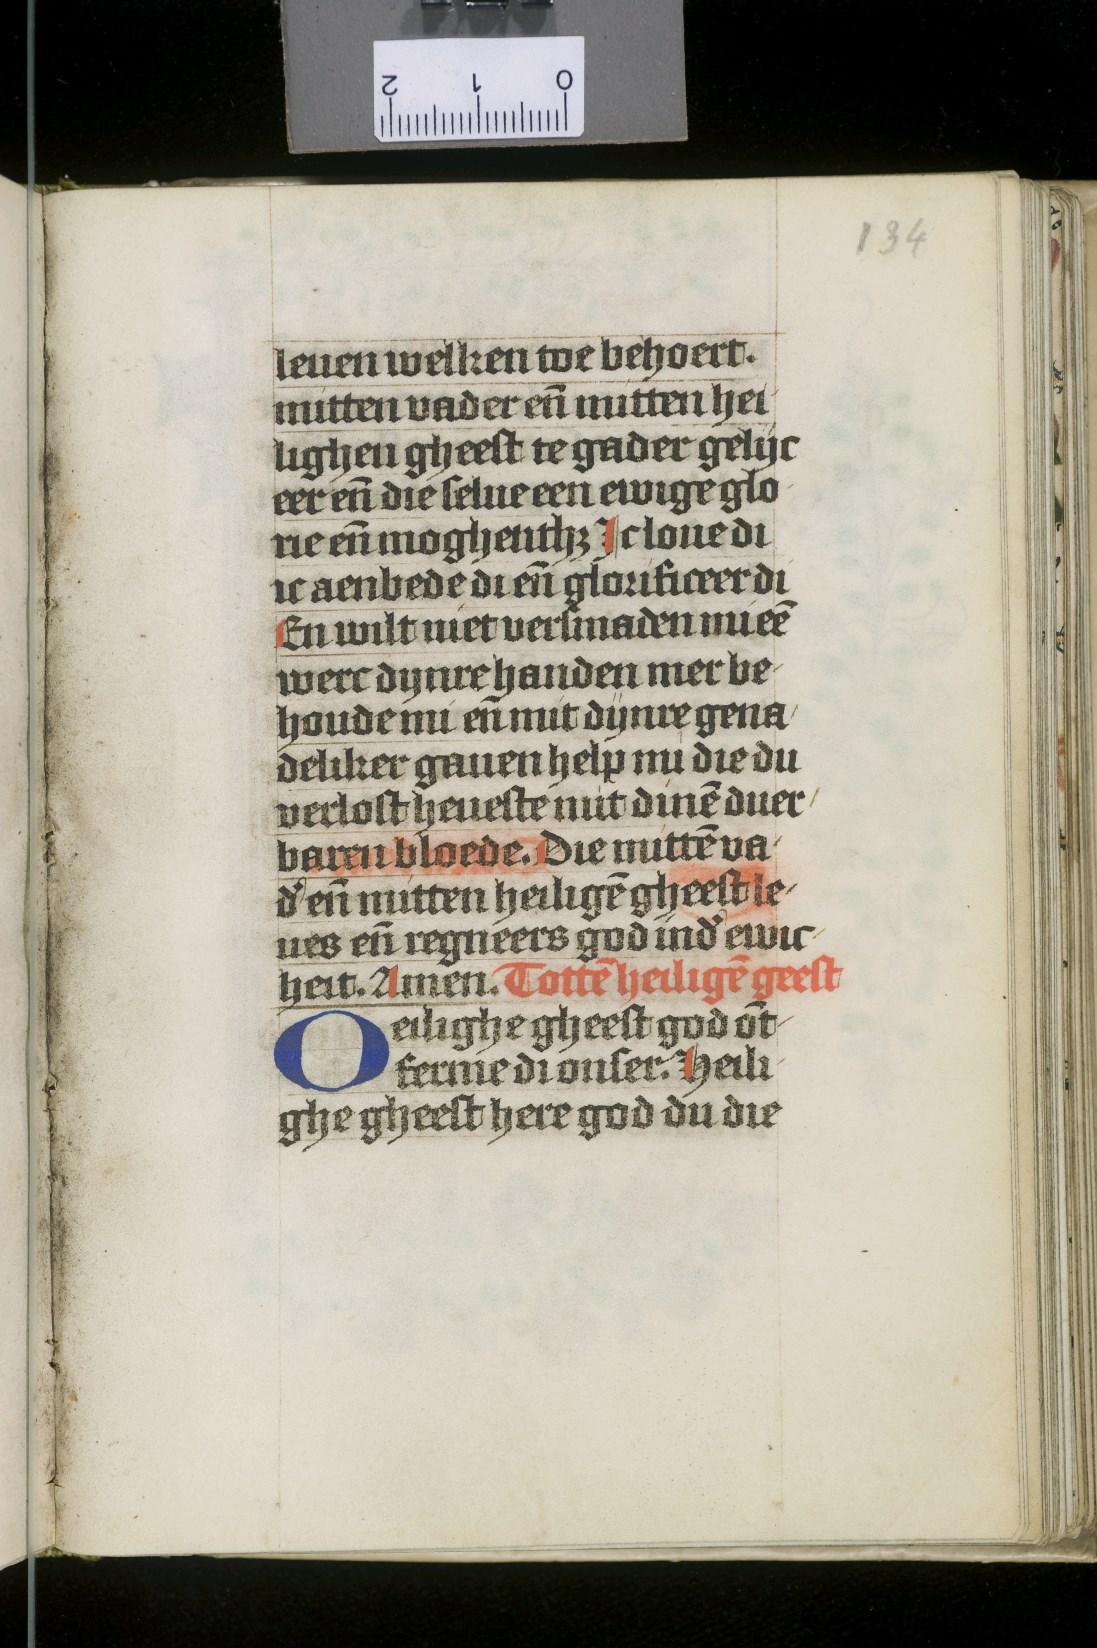 134
leuen welken toe behoert.
mitten vader en̄ mitten hei
lighen gheest te gader gelijc
eer en̄ die selue een ewige glo
rie en̄ moghenthꝫ Ic loue di
ic aenbede di en̄ glorificeer di
En wilt niet versmaden mi eē
werc dijnre handen mer be
houde mi en̄ mit dijnre gena
deliker gauen help mi die du
verlost heueste mit dinē duer
baren bloede. Die mittē va
d' en̄ mitten heiligē gheest le
ues en̄ regneers god ind' ewic
heit. Amen. Tottē heiligē geest
O eilighe gheest god ōt
ferme di onser. Heili
ghe gheest here god du die
2 1 0